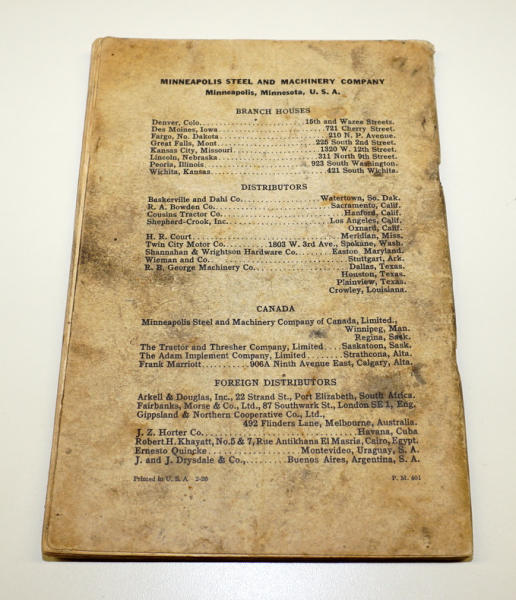 MINNEAPOLIS STEEL AND MACHINERY COMPANY
Minneapolis, Minnesota, U. S. A.
BRANCH HOUSES
Denver, Colo. 15th and Wazee Streets.
Des Moines, Iowa 721 Cherry Street.
Fargo, No. Dakota 210 N. P. Avenue.
Great Falls, Mont 225 South 2nd Street.
Kansas City, Missouri 1320 W. 12th Street.
Lincoln, Nebraska 311 North 9th Street.
Peoria, Illinois 923 South Washington.
Wichita, Kansas 421 South Wichita.
DISTRIBUTORS
Baskerville and Dahl Co. Watertown, So. Dak.
R. A. Bowden Co. Sacramento, Calif.
Cousins Tractor Co. Hanford, Calif.
Shepherd-Crook, Inc. Los Angeles, Calif.
Oxnard, Calif.
H. R. Court Meridian, Miss.
Twin City Motor Co. 1803 W. 3rd Ave., Spokane, Wash.
Shannahan & Wrightson Hardware Co. Easton, Maryland.
Wieman and Co. Stuttgart, Ark.
R. B. George Machinery Co. Dallas, Texas.
Houston, Texas.
Plainview, Texas.
Crowley, Louisiana.
CANADA
Minneapolis Steel and Machinery Company of Canada, Limited.,
Winnipeg, Man.
Regina, Sask.
The Tractor and Thresher Company, Limited Saskatoon, Sask.
The Adam Implement Company, Limited Strathcona, Alta.
Frank Marriott 906A Ninth Avenue East, Calgary, Alta.
FOREIGN DISTRIBUTORS
Arkell & Douglas, Inc., 22 Strand St., Port Elizabeth, South Africa.
Fairbanks, Morse & Co., Ltd., 87 Southwark St., London SE 1, Eng.
Gippsland & Northern Cooperative Co., Ltd.,
492 Flinders Lane, Melbourne, Australia.
J. Z. Horter Co. Havana, Cuba
Robert H. Khayatt, No. 5 & 7, Rue Antikhana El Masria, Cairo, Egypt.
Ernesto Quincke Montevideo, Uraguay, S. A.
J. and J. Drysdale & Co., Buenos Aires, Argentina, S. A.
Printed in U. S. A. 2-20 P. M. 401